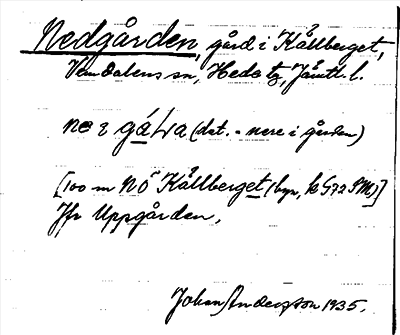 Nedgården, gård i Kållberget,
Vemdalens sn, Hede tg, Jämtl. l.
(dat. = nere i gården)
[100 m NÖ Kållberget (byn, k 572 SM)]
Jfr Uppgården.
Johan Andersson 1935.